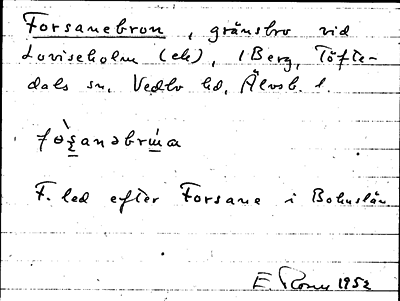 Forsanebron, gränsbro vid
Loviseholm (ek), i Berg, Töfte-
dals sn, Vedbo hd, Älvsb. l.
F. led efter Forsane i Bohuslän
1952